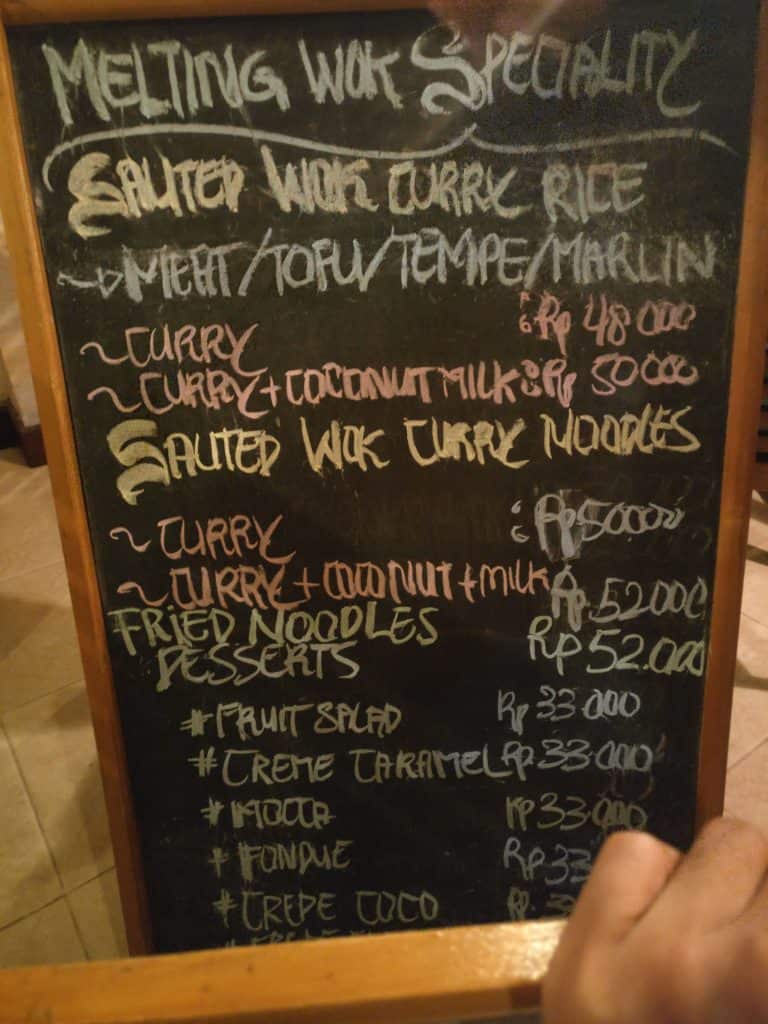 MELTING WOK SPECIALITY
SAUTED WOK CURRY RICE
MEAT/TOFU/TEMPE/MARLIN
~CURRY : Rp 48 000
~CURRY+COCONUT MILK : Rp 50000
SAUTED WOK CURRY NOODLES
~CURRY : Rp 50000
~CURRY+COCONUT+MILK Rp 52000
FRIED NOODLES Rp 52.000
DESSERTS
#FRUIT SALAD Rp 33 000
#CREME CARAMEL Rp 33.000
#MOCCA Rp 33.000
#FONDUE Rp 33
#CREPE COCO Rp. 3